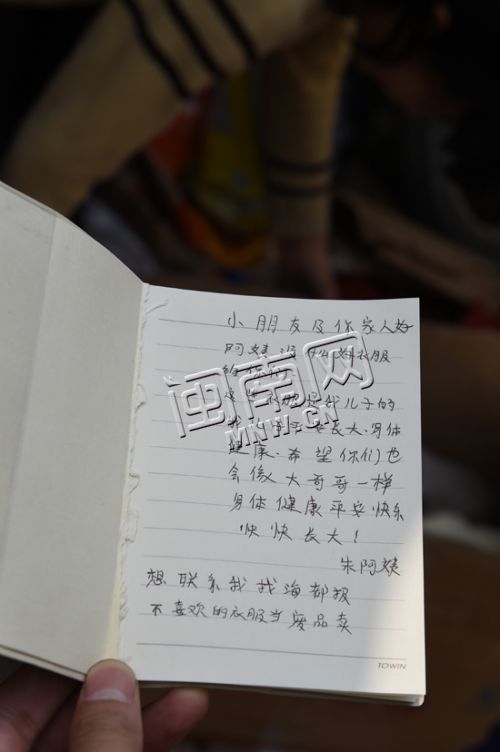 小朋友及你家人好
阿姨没什么好衣服
给你们
这些衣服是我儿子的
长大.身体
健康.希望你们也
会像大哥哥一样
身体健康平安快乐
快快长大!
朱阿姨
想联系我找海都报
不喜欢的衣服当废品卖
TOWIN
闽南网
MNW.CN